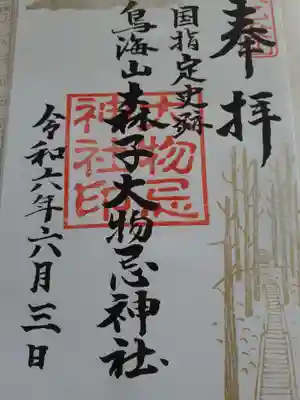 奉拝
国指定史跡
鳥海山森子大物忌神社
大物忌
神社印
令和六年六月三日